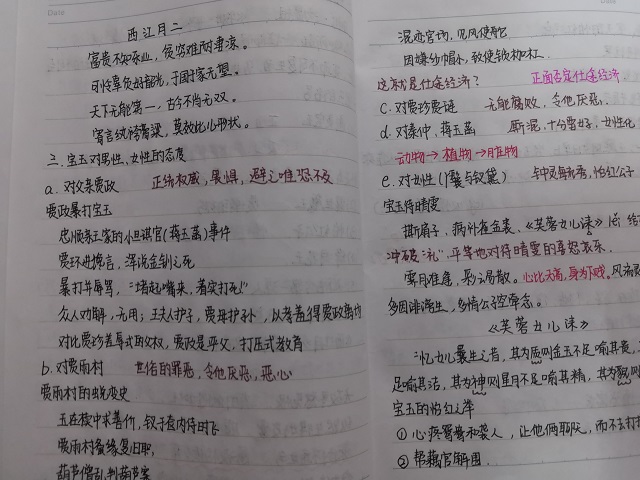 Date
西江月二
富贵不知乐业,贫穷难耐凄凉。
可怜辜负好韶光,于国于家无望。
天下无能第一,古今不肖无双。
寄言纨绔膏粱,莫效此儿形状。
三、宝玉对男性、女性的态度
a. 对父亲贾政 正统权威,畏惧,避之唯恐不及
贾政暴打宝玉
忠顺亲王家的小旦琪官(蒋玉菡)事件
贾环进谗言,浑说金钏之死
暴打并辱骂,"堵起嘴来,着实打死"
众人劝解,无用;王夫人护子,贾母护孙,以孝羞得贾政
对比贾珍羞辱式的父权,贾政是严父,打压式教育
b. 对贾雨村 世俗的罪恶,令他厌恶,恶心
贾雨村的蜕变史
玉在椟中求善价,钗于奁内待时飞
贾雨村夤缘复旧职,
葫芦僧乱判葫芦案
Date
混迹官场,见风使舵
因嫌纱帽小,致使锁枷杠
这就是仕途经济? 正面否定仕途经济
c. 对贾珍贾琏 无能腐败,令他厌恶
d. 对秦仲,蒋玉菡 厮混,十分要好,女性化
动物→植物→唯物
e. 对女性(袭与钗黛) 怡红公子
宝玉待晴雯
撕扇子,病补雀金裘,《芙蓉女儿诔》
冲破"礼",平等地对待晴雯的喜怒哀乐
霁月难逢,彩云易散。心比天高,身为下贱。风流
多因诽谤生,多情公子空牵念。
《芙蓉女儿诔》
忆女儿曩生之昔,其为质则金玉不足喻其贵,
足喻其洁,其为神则星月不足喻其精,其为貌则
宝玉的怡红之举
① 心疼鸳鸯和袭人,让他俩歇趴,而不去打扰
② 帮藕官解围